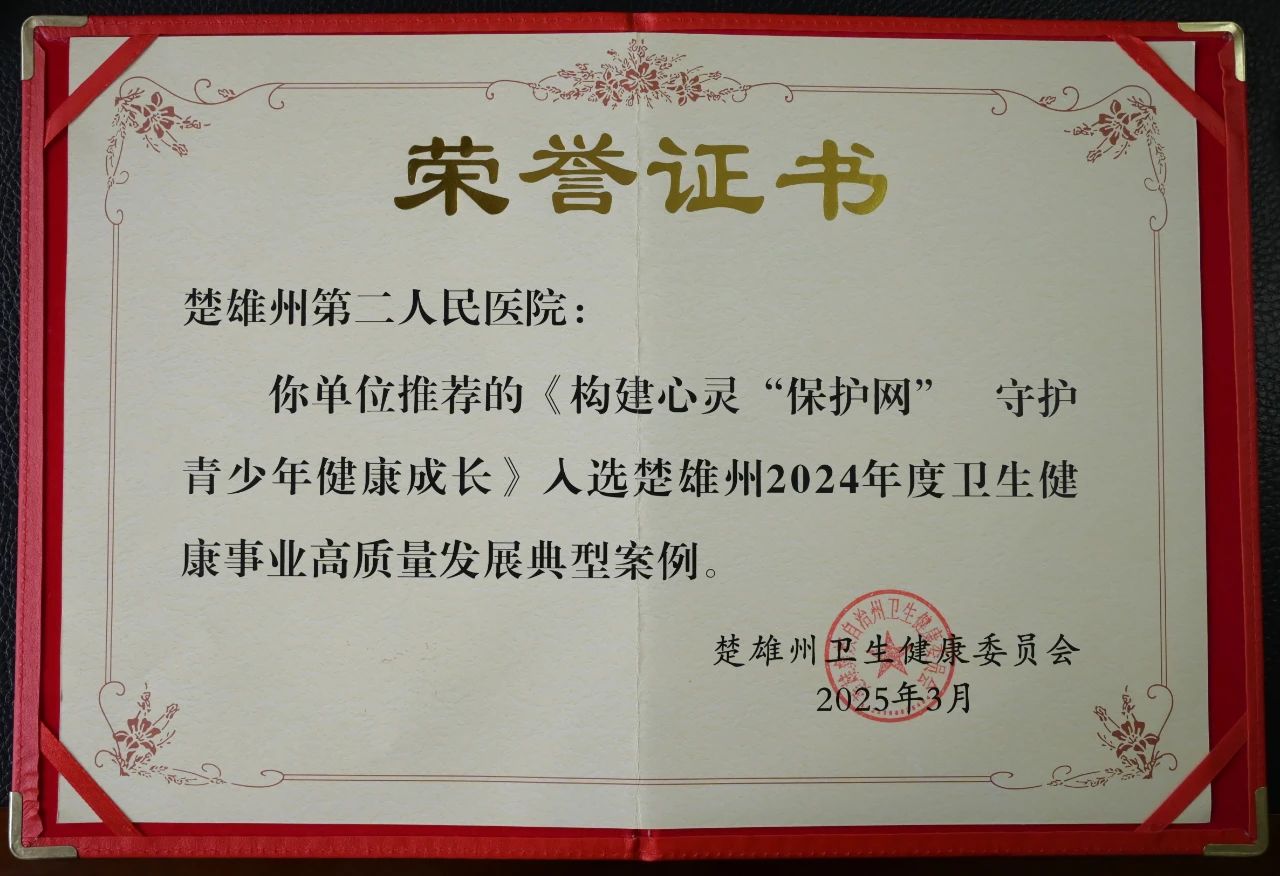 荣誉证书
楚雄州第二人民医院：
你单位推荐的《构建心灵“保护网” 守护
青少年健康成长》入选楚雄州2024年度卫生健
康事业高质量发展典型案例。
楚雄州卫生健康委员会
2025年3月
自治州卫生健康委员会